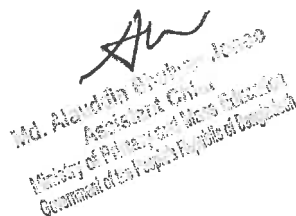 Md. Alauddin
Assistant
Ministry of Primary and Mass Education
Government of the People's Republic of Bangladesh